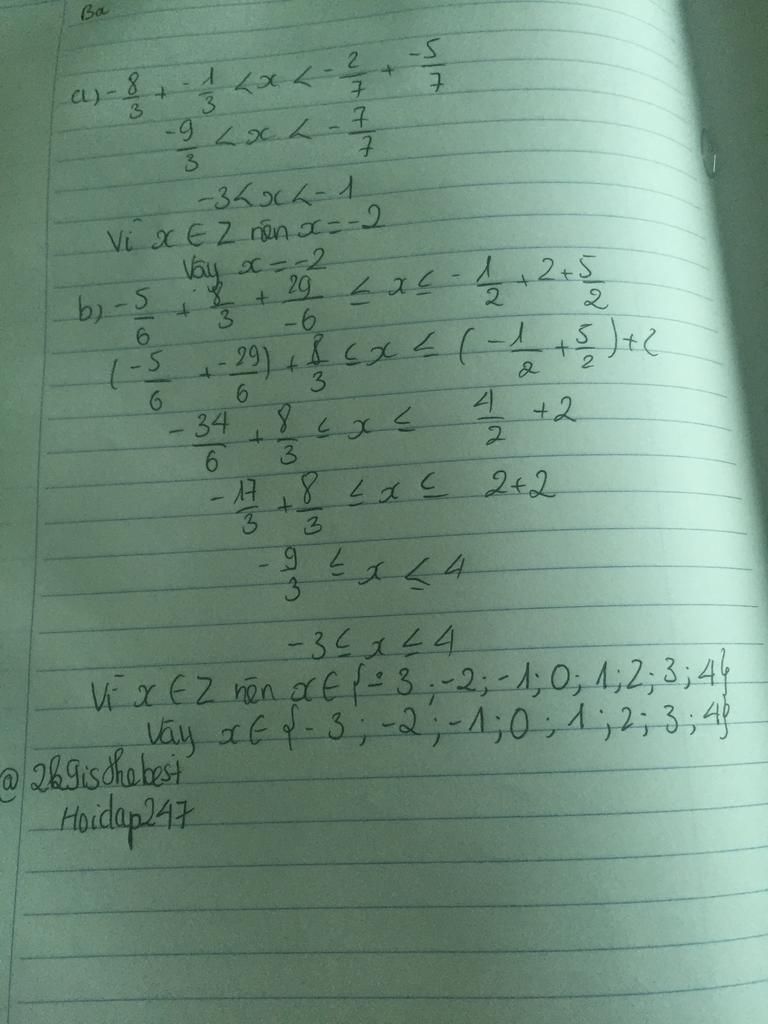 Ba
a) -8/3 + -1/3 < x < -2/7 + -5/7
-9/3 < x < -7/7
-3 < x < -1
Vì x ∈ Z nên x = -2
Vậy x = -2
b) -5/6 + 8/3 + 29/-6 ≤ x ≤ -1/2 + 2 + 5/2
(-5/6 + -29/6) + 8/3 ≤ x ≤ (-1/2 + 5/2) + 2
-34/6 + 8/3 ≤ x ≤ 4/2 + 2
-17/3 + 8/3 ≤ x ≤ 2+2
-9/3 ≤ x ≤ 4
-3 ≤ x ≤ 4
Vì x ∈ Z nên x ∈ {-3; -2; -1; 0; 1; 2; 3; 4}
Vậy x ∈ {-3; -2; -1; 0; 1; 2; 3; 4}
@ 2k9isthebest
Hoidap247